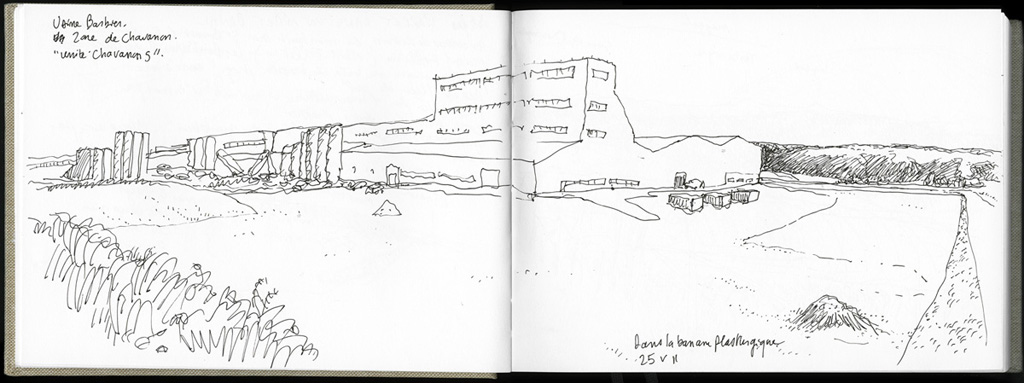 Usine Barbier.
Zone de Chavanon.
"unité Chavanon 5".
Dans la banane
25 V 11